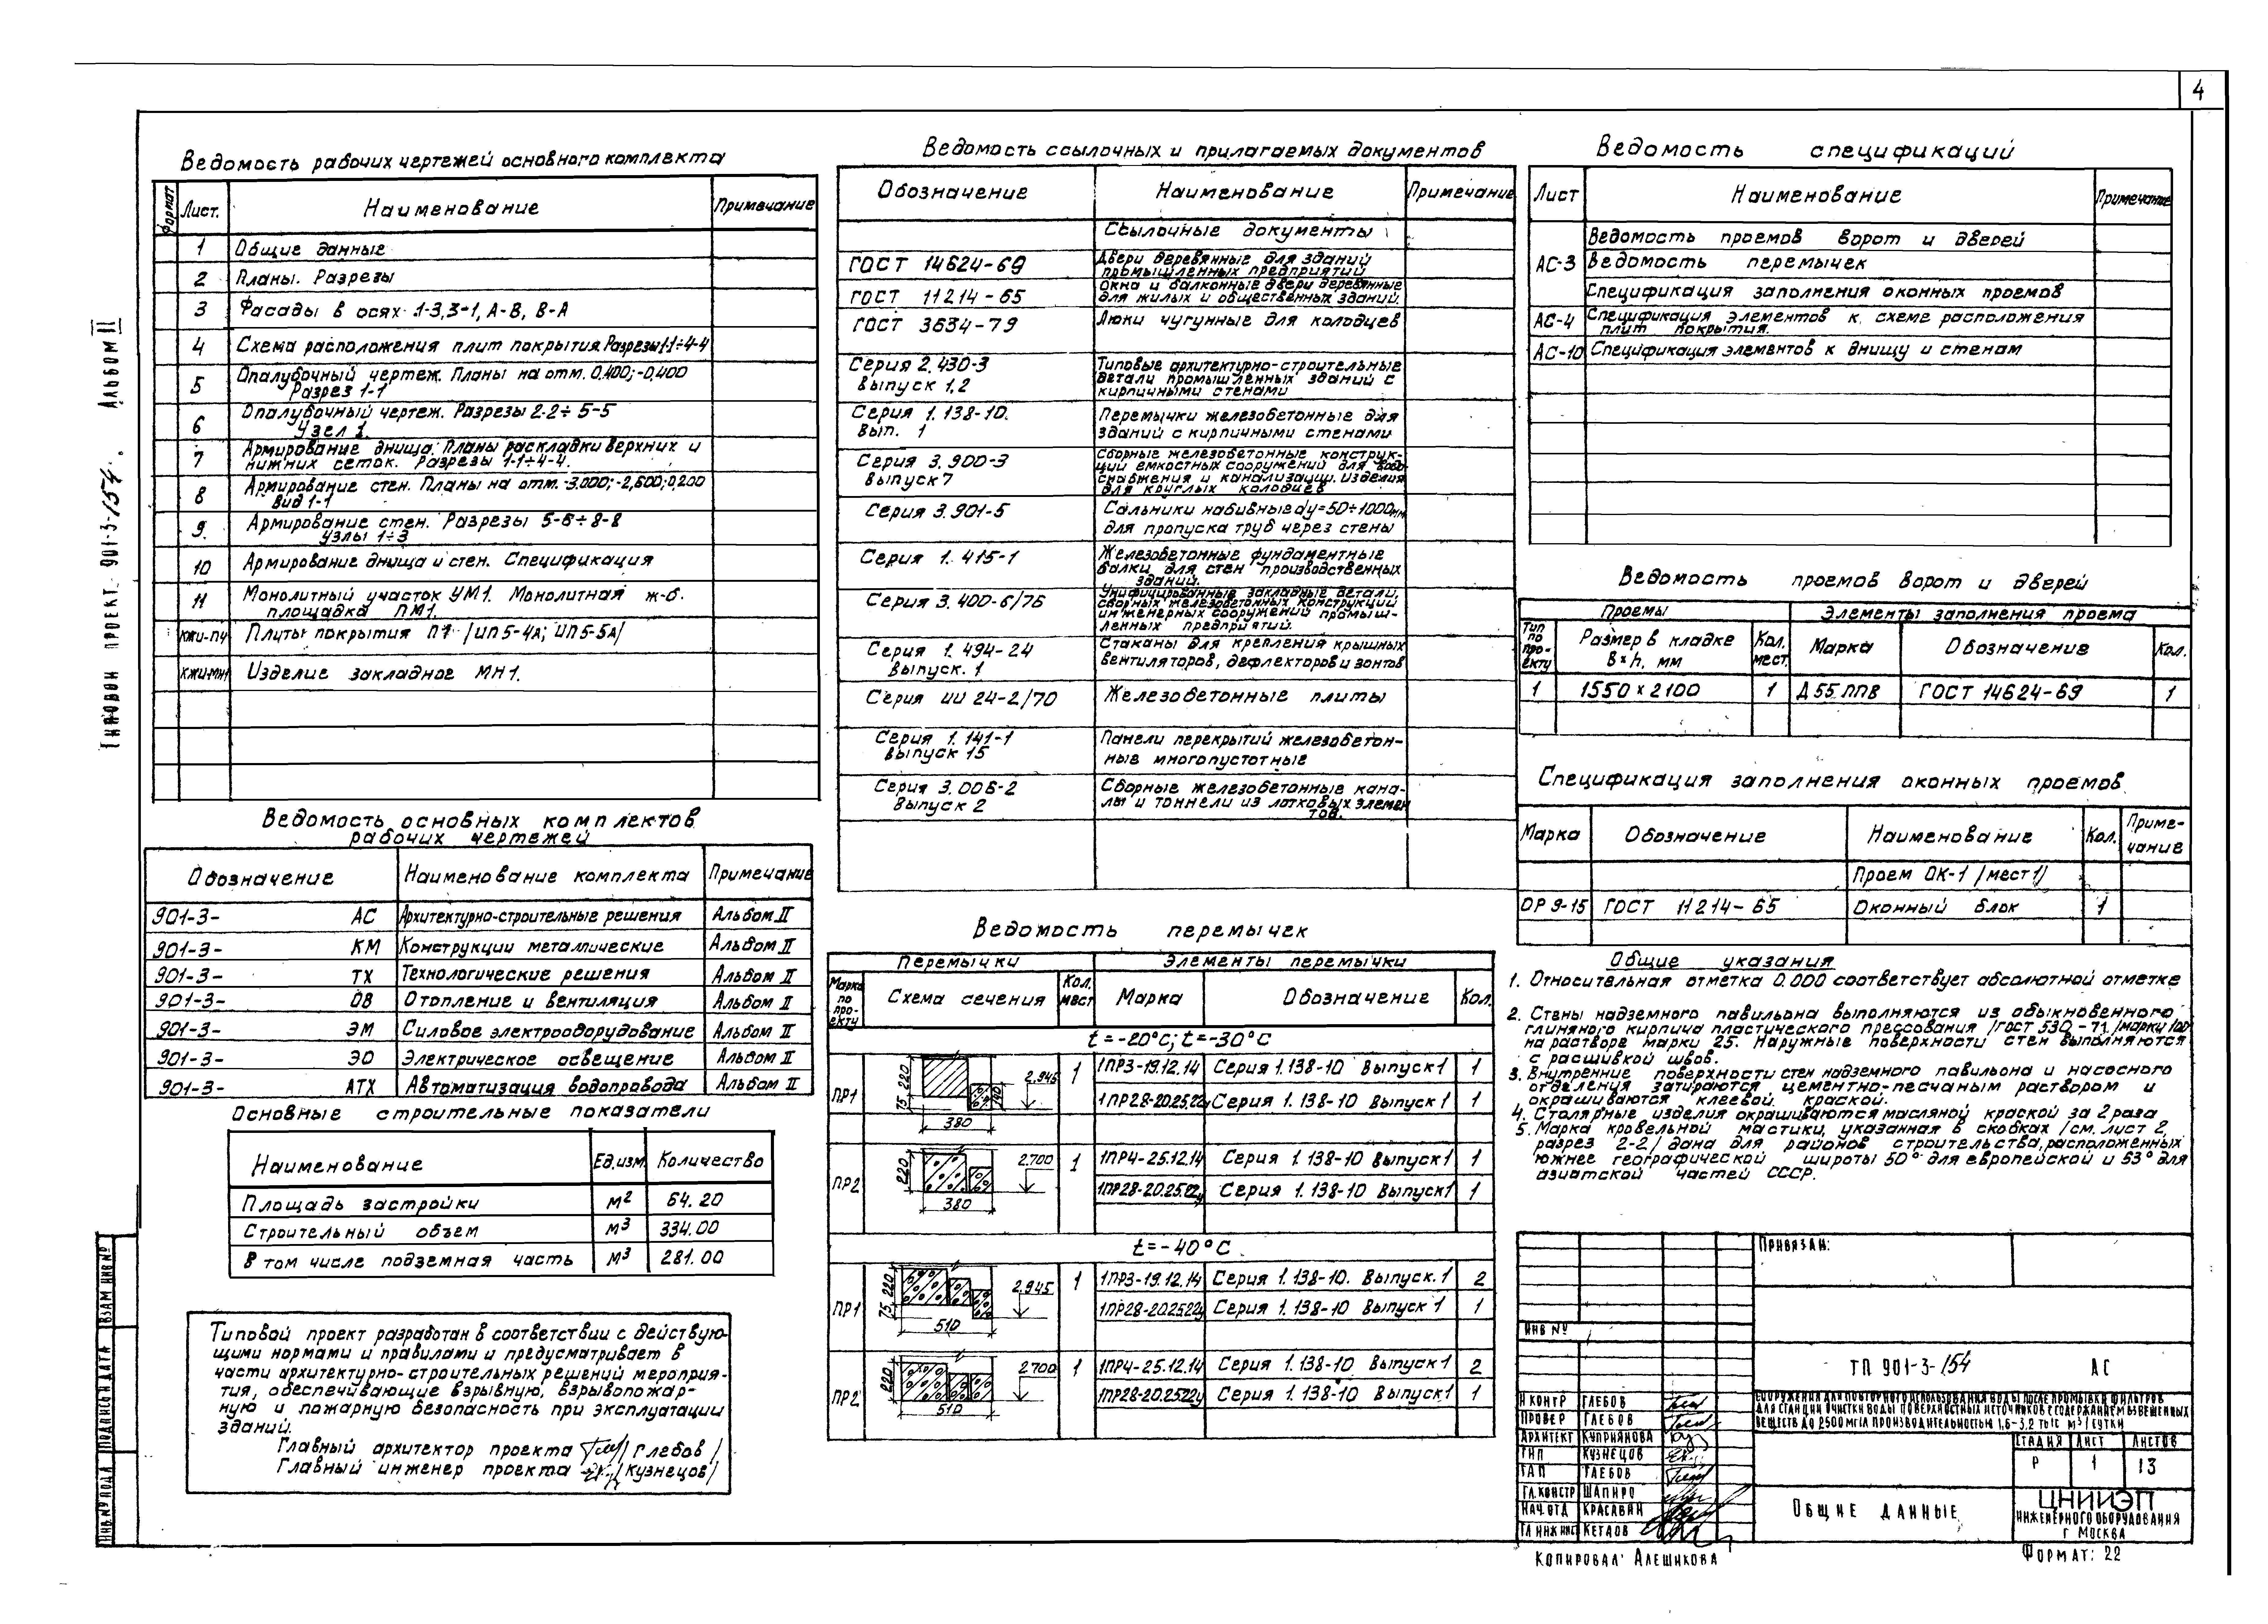 4
Типовой проект 901-3-154. Альбом II
Ведомость рабочих чертежей основного комплекта
Формат Лист. Наименование Примечание
1 Общие данные
2 Планы. Разрезы
3 Фасады в осях 1-3, 3-1, А-В, В-А
4 Схема расположения плит покрытия. Разрезы 1-1÷4-4
5 Опалубочный чертеж. Планы на отм. 0.400; -0.400
Разрез 1-1
6 Опалубочный чертеж. Разрезы 2-2÷5-5
Узел 1.
7 Армирование днища. Планы раскладки верхних и
нижних сеток. Разрезы 1-1÷4-4.
8 Армирование стен. Планы на отм. -3.000; -2,600; 0,200
Вид 1-1
9. Армирование стен. Разрезы 5-6÷8-8
Узлы 1÷3
10 Армирование днища и стен. Спецификация
11 Монолитный участок УМ1. Монолитная ж-б.
площадка ПМ1.
КЖИ-П4 Плиты покрытия П1 /ИП5-4А; ИП5-5А/
КЖИ-МН1 Изделие закладное МН1.
Ведомость основных комплектов
рабочих чертежей
Обозначение Наименование комплекта Примечание
901-3- АС Архитектурно-строительные решения Альбом II
901-3- КМ Конструкции металлические Альбом II
901-3- ТХ Технологические решения Альбом II
901-3- ОВ Отопление и вентиляция Альбом II
901-3- ЭМ Силовое электрооборудование Альбом II
901-3- ЭО Электрическое освещение Альбом II
901-3- АТХ Автоматизация водопровода Альбом II
Основные строительные показатели
Наименование Ед.изм. Количество
Площадь застройки м² 64.20
Строительный объем м³ 334.00
В том числе подземная часть м³ 281.00
Типовой проект разработан в соответствии с действую-
щими нормами и правилами и предусматривает в
части архитектурно-строительных решений мероприя-
тия, обеспечивающие взрывную, взрывопожар-
ную и пожарную безопасность при эксплуатации
зданий.
Главный архитектор проекта /Глебов/
Главный инженер проекта /Кузнецов/
Инв № подл Подпись и дата Взам инв №
Ведомость ссылочных и прилагаемых документов
Обозначение Наименование Примечание
Ссылочные документы
ГОСТ 14624-69 Двери деревянные для зданий
промышленных предприятий
ГОСТ 11214-65 Окна и балконные двери деревянные
для жилых и общественных зданий.
ГОСТ 3634-79 Люки чугунные для колодцев
Серия 2.430-3 Типовые архитектурно-строительные
Выпуск 1,2 детали промышленных зданий с
кирпичными стенами
Серия 1.138-10. Перемычки железобетонные для
Вып. 1 зданий с кирпичными стенами
Серия 3.900-3 Сборные железобетонные конструк-
ции емкостных сооружений для водо-
Выпуск 7 снабжения и канализации. Изделия
для круглых колодцев
Серия 3.901-5 Сальники набивные dy=50÷1000мм
для пропуска труб через стены
Серия 1.415-1 Железобетонные фундаментные
балки для стен производственных
зданий.
Серия 3.400-6/76 Унифицированные закладные детали,
сборных железобетонных конструкций
инженерных сооружений промыш-
ленных предприятий.
Серия 1.494-24 Стаканы для крепления крышных
Выпуск. 1 вентиляторов, дефлекторов и зонтов
Серия ИИ 24-2/70 Железобетонные плиты
Серия 1.141-1 Панели перекрытий железобетон-
Выпуск 15 ные многопустотные
Серия 3.006-2 Сборные железобетонные кана-
Выпуск 2 лы и тоннели из лотковых элемен
тов.
Ведомость перемычек
Перемычки Элементы перемычки
Марка по про-екту Схема сечения Кол. мест Марка Обозначение Кол.
t=-20°С; t=-30°С
ПР1 220 75 380 190 2.945 1 1ПР3-19.12.14 Серия 1.138-10 Выпуск 1 1
1ПР28-20.25.22у Серия 1.138-10 Выпуск 1 1
ПР2 220 380 2.700 1 1ПР4-25.12.14 Серия 1.138-10 Выпуск 1 1
1ПР28-20.25.22у Серия 1.138-10 Выпуск 1 1
t=-40°С
ПР1 220 75 510 2.945 1 1ПР3-19.12.14 Серия 1.138-10. Выпуск. 1 2
1ПР28-20.25.22у Серия 1.138-10 Выпуск 1 1
ПР2 220 510 2.700 1 1ПР4-25.12.14 Серия 1.138-10 Выпуск 1 2
1ПР28-20.25.22у Серия 1.138-10 Выпуск 1 1
Ведомость спецификаций
Лист Наименование Примечание
Ведомость проемов ворот и дверей
АС-3 Ведомость перемычек
Спецификация заполнения оконных проемов
АС-4 Спецификация элементов к схеме расположения
плит покрытия.
АС-10 Спецификация элементов к днищу и стенам
Ведомость проемов ворот и дверей
Проемы Элементы заполнения проема
Тип по про-екту Размер в кладке B×h, мм Кол. мест. Марка Обозначение Кол.
1 1550×2100 1 Д55ЛПВ ГОСТ 14624-69 1
Спецификация заполнения оконных проемов
Марка Обозначение Наименование Кол. Приме-чание
Проем ОК-1 /мест 1/
ОР 9-15 ГОСТ 11214-65 Оконный блок 1
Общие указания
1. Относительная отметка 0.000 соответствует абсолютной отметке
2. Стены надземного павильона выполняются из обыкновенного
глиняного кирпича пластического прессования /ГОСТ 530-71/ марки 100
на растворе марки 25. Наружные поверхности стен выполняются
с расшивкой швов.
3. Внутренние поверхности стен надземного павильона и насосного
отделения затираются цементно-песчаным раствором и
окрашиваются клеевой краской.
4. Столярные изделия окрашиваются масляной краской за 2 раза
5. Марка кровельной мастики, указанная в скобках /см. лист 2,
разрез 2-2/ дана для районов строительства, расположенных
южнее географической широты 50° для европейской и 53° для
азиатской частей СССР.
Привязан:
Инв №
ТП 901-3-154 АС
Сооружения для повторного использования воды после промывки фильтров
для станции очистки воды поверхностных источников с содержанием взвешенных
веществ до 2500 мг/л производительностью 1,6-3,2 тыс м³/сутки
Н контр Глебов
Провер Глебов
Архитект Куприянова
ГИП Кузнецов
ГАП Глебов
Гл.констр Шапиро
Нач.отд Красавин
Гл инж инст Кетаов
Стадия Лист Листов
Р 1 13
Общие данные
ЦНИИЭП
инженерного оборудования
г Москва
Копировал: Алешикова
Формат: 22